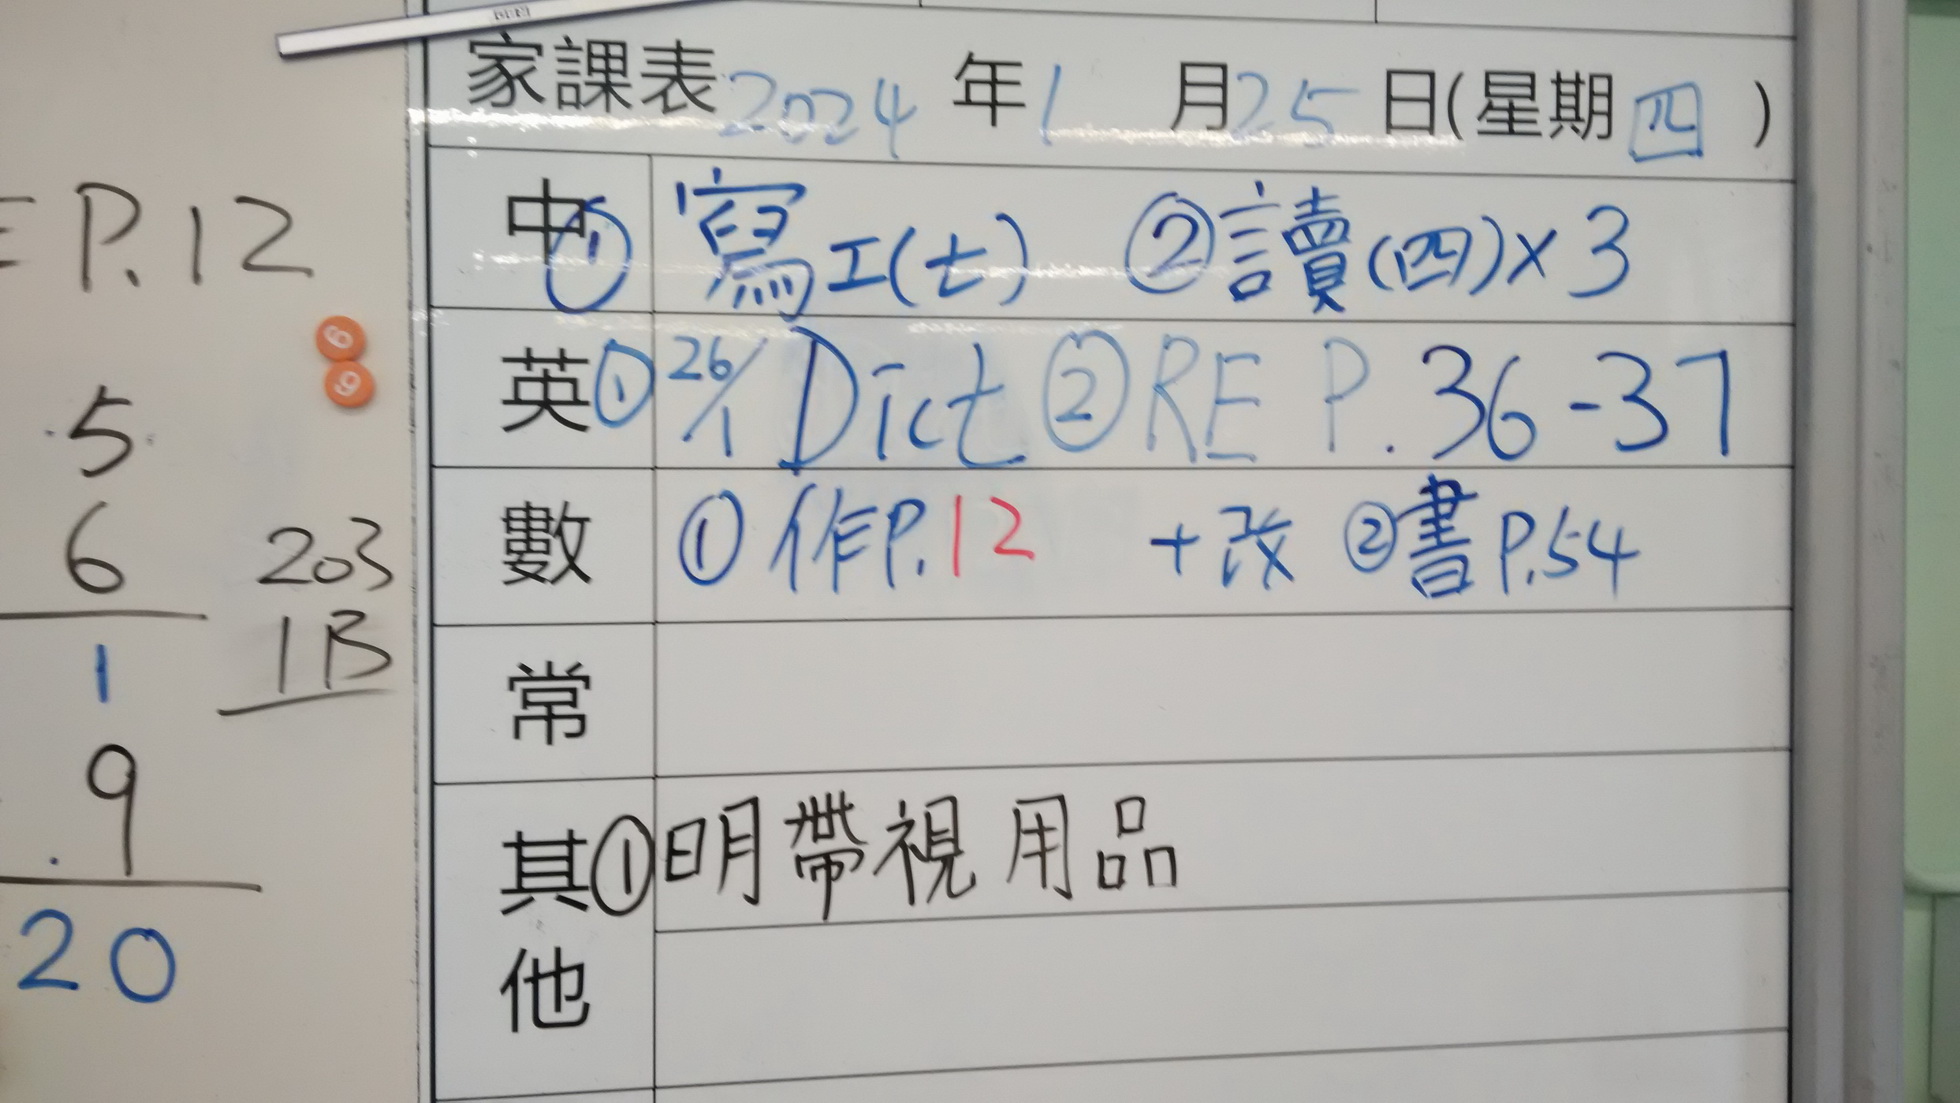 家課表 2024 年 1 月 25 日(星期 四 )
中 ① 寫工(七) ② 讀(四)×3
英 ① 26/1 Dict ② RE P.36-37
數 ① 作P.12 +改 ② 書P.54
常
其他 ① 明帶視用品
P.12
6
9
5
6
203
1B
1
9
20